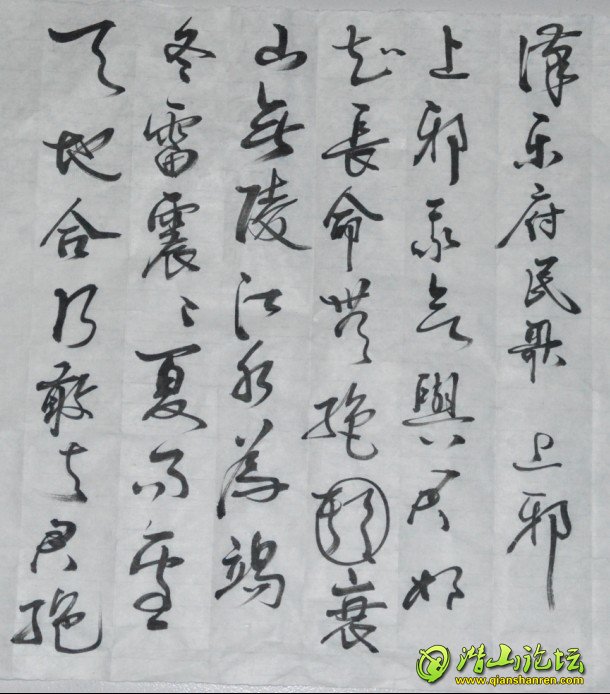 漢乐府民歌 上邪
上邪我欲與君相
知長命無絶衰
山無陵江水為竭
冬雷震〻夏雨雪
天地合乃敢与君絶
潜山论坛
www.qianshanren.com